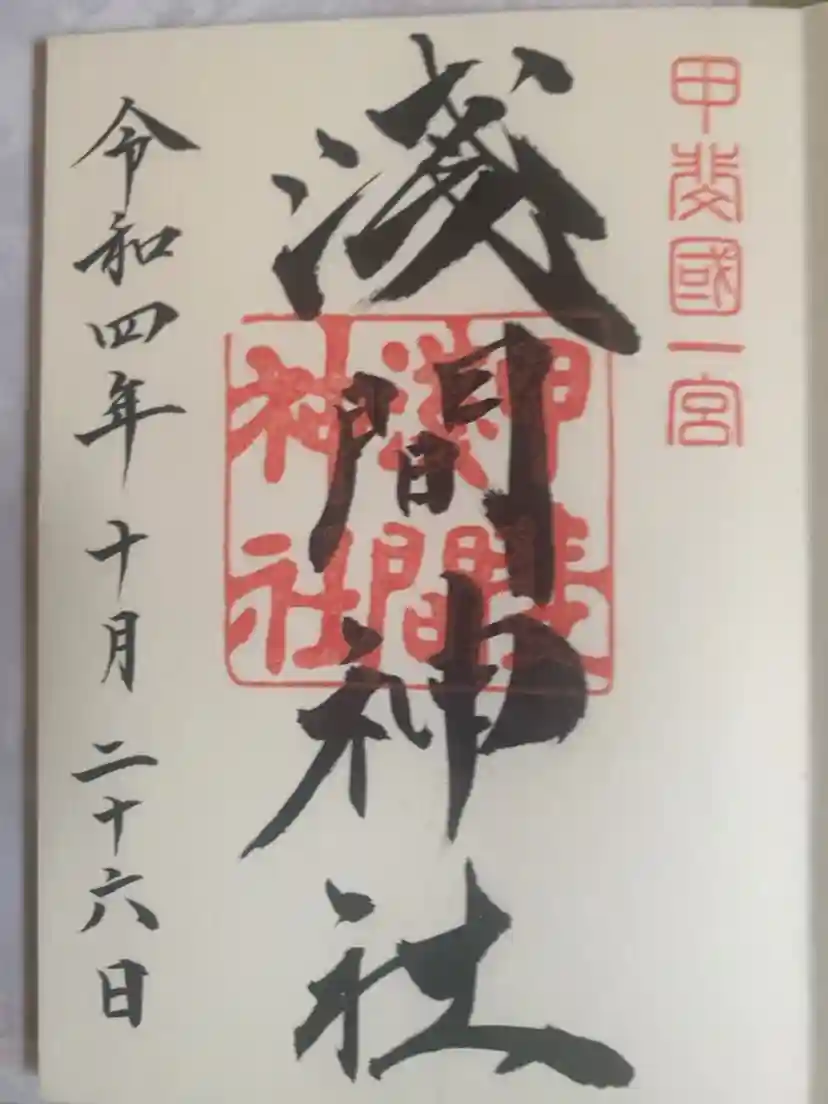 甲斐國一宮
浅間神社
甲斐
浅間
神社
令和四年十月二十六日